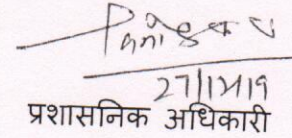 27/12/19
प्रशासनिक अधिकारी